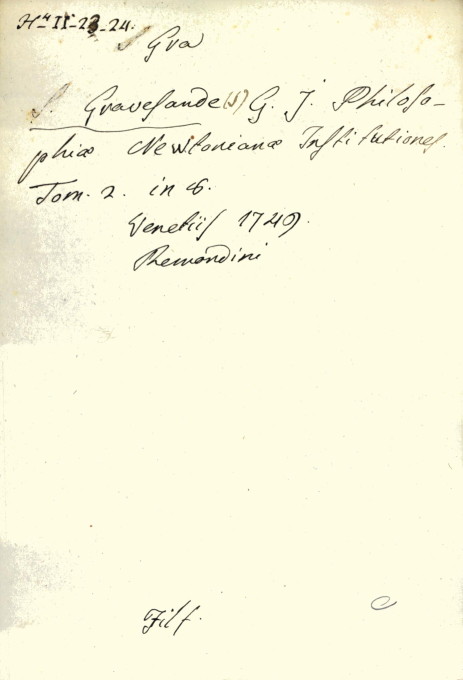 Hᵃ II-23-24.
S Gra
S. Gravesande (S) G. J. Philoso-
phiæ Newtonianæ Institutiones.
Tom. 2. in 8.
Venetiis 1749.
Remondini
Filf.
C